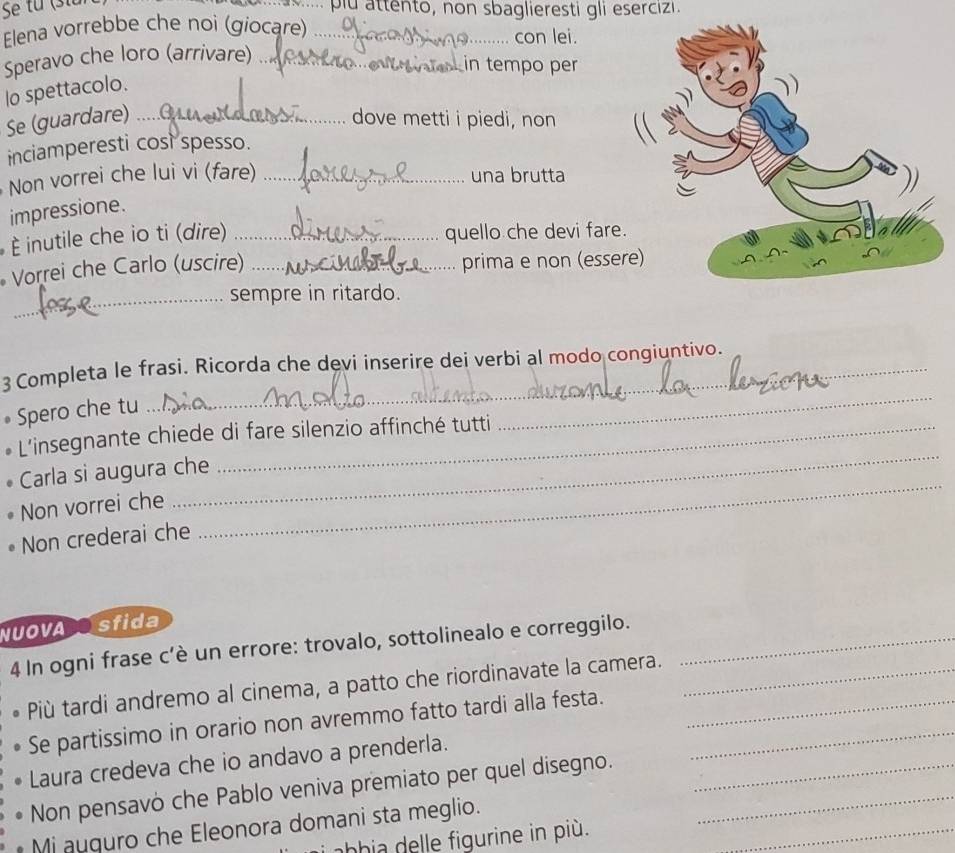 Se tu più attento, non sbaglieresti gli esercizi.
Elena vorrebbe che noi (giocare) giocassimo con lei.
Speravo che loro (arrivare) fossero in tempo per
lo spettacolo.
Se (guardare) guardassi dove metti i piedi, non
inciamperesti così spesso.
Non vorrei che lui vi (fare) una brutta
impressione.
• È inutile che io ti (dire) quello che devi fare.
• Vorrei che Carlo (uscire) prima e non (essere)
fosse sempre in ritardo.
3 Completa le frasi. Ricorda che devi inserire dei verbi al modo congiuntivo.
• Spero che tu sia molto attento durante la lezione
• L'insegnante chiede di fare silenzio affinché tutti
• Carla si augura che
• Non vorrei che
• Non crederai che
NUOVA sfida
4 In ogni frase c'è un errore: trovalo, sottolinealo e correggilo.
• Più tardi andremo al cinema, a patto che riordinavate la camera.
• Se partissimo in orario non avremmo fatto tardi alla festa.
• Laura credeva che io andavo a prenderla.
• Non pensavo che Pablo veniva premiato per quel disegno.
• Mi auguro che Eleonora domani sta meglio.
abbia delle figurine in più.